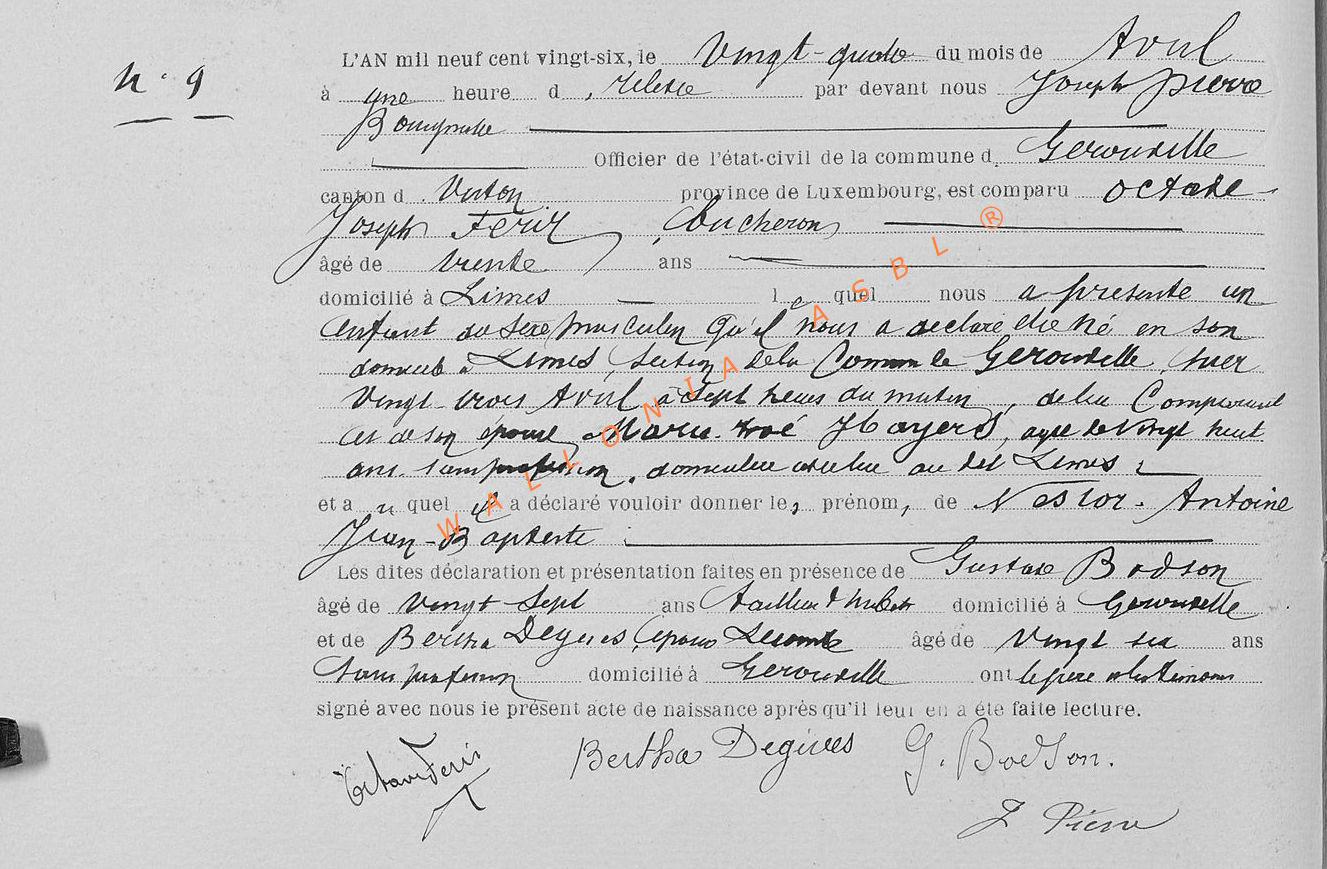 N° 9
L'AN mil neuf cent vingt-six, le Vingt-quatre du mois de Avril
à une heure d relevée par devant nous Joseph Pierre
Bourgmestre
Officier de l'état-civil de la commune d Gérouville
canton d Virton province de Luxembourg, est comparu Octave
Joseph Feriz, bucheron,
âgé de trente ans
domicilié à Limes le quel nous a présenté un
enfant du sexe masculin qu'il nous a déclaré être né en son
domicile à Limes, section de la Commune de Gérouville, hier
Vingt-trois Avril à sept heures du matin, de lui Comparant
et de son épouse Marie Hayers, agée de vingt huit
ans, sans profession, domiciliée avec lui au dit Limes ;
et au quel il a déclaré vouloir donner les prénoms de Nestor-Antoine
Jean-Baptiste
Les dites déclaration et présentation faites en présence de Gustave Bodson
âgé de vingt sept ans tailleur d'habits domicilié à Gérouville
et de Bertha Degives, épouse Lecomte âgé de vingt six ans
sans profession domicilié à Gérouville ont le père et les témoins
signé avec nous le présent acte de naissance après qu'il leur en a été faite lecture.
Octave Feriz Bertha Degives G. Bodson.
J Pierre
WALLONIA ASBL ®